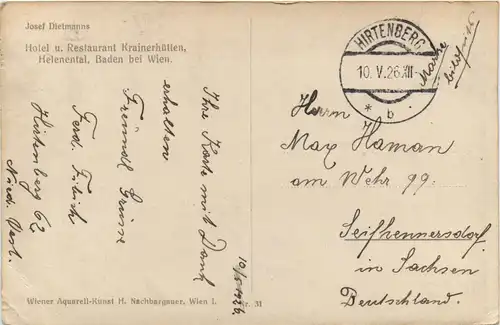 Josef Dietmanns
Hotel u. Restaurant Krainerhütten,
Helenental, Baden bei Wien.
Ihre Karte mit Dank
erhalten
Freundl Grüsse
Ferd.
Hirtenberg 62
Nied. Öst.
10/5 1926
HIRTENBERG
10.V.26.XII-
* b
Marke
bildseits
Herrn
Max Haman
am Wehr 99.
Seifhennersdorf
in Sachsen
Deutschland.
Wiener Aquarell-Kunst H. Nachbargauer, Wien I. Nr. 31